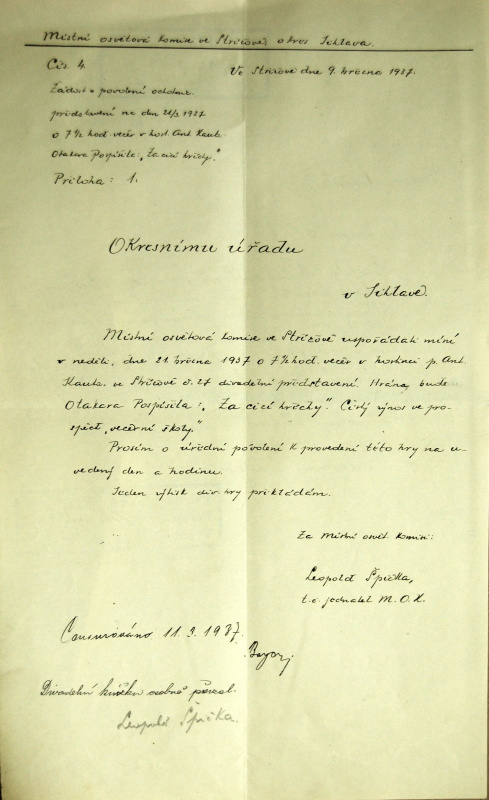 Místní osvětová komise ve Střížově, okres Jihlava.
Čís. 4.
Ve Střížově dne 9. března 1937.
Žádost o povolení ochotnic.
představení na den 21/3 1937
o 7½ hod. večer v host. Ant. Kauta.
Otakara Pospíšila: „Za cizí hříchy."
Příloha: 1.
Okresnímu úřadu
v Jihlavě.
Místní osvětová komise ve Střížově uspořádati míní
v neděli, dne 21. března 1937 o 7½ hod. večer v hostinci p. Ant.
Kauta ve Střížově č. 27 divadelní představení. Hrána bude
Otakara Pospíšila: „Za cizí hříchy". Čistý výnos ve pro-
spěch „večerní školy."
Prosím o úřední povolení k provedení této hry na u-
vedený den a hodinu.
Jeden výtisk div. hry přikládám.
Za místní osvět. komisi:
Leopold Špička,
t. č. jednatel M. O. K.
Censurováno 11.3.1937.
Divadelní knížku osobně převzal.
Leopold Špička.